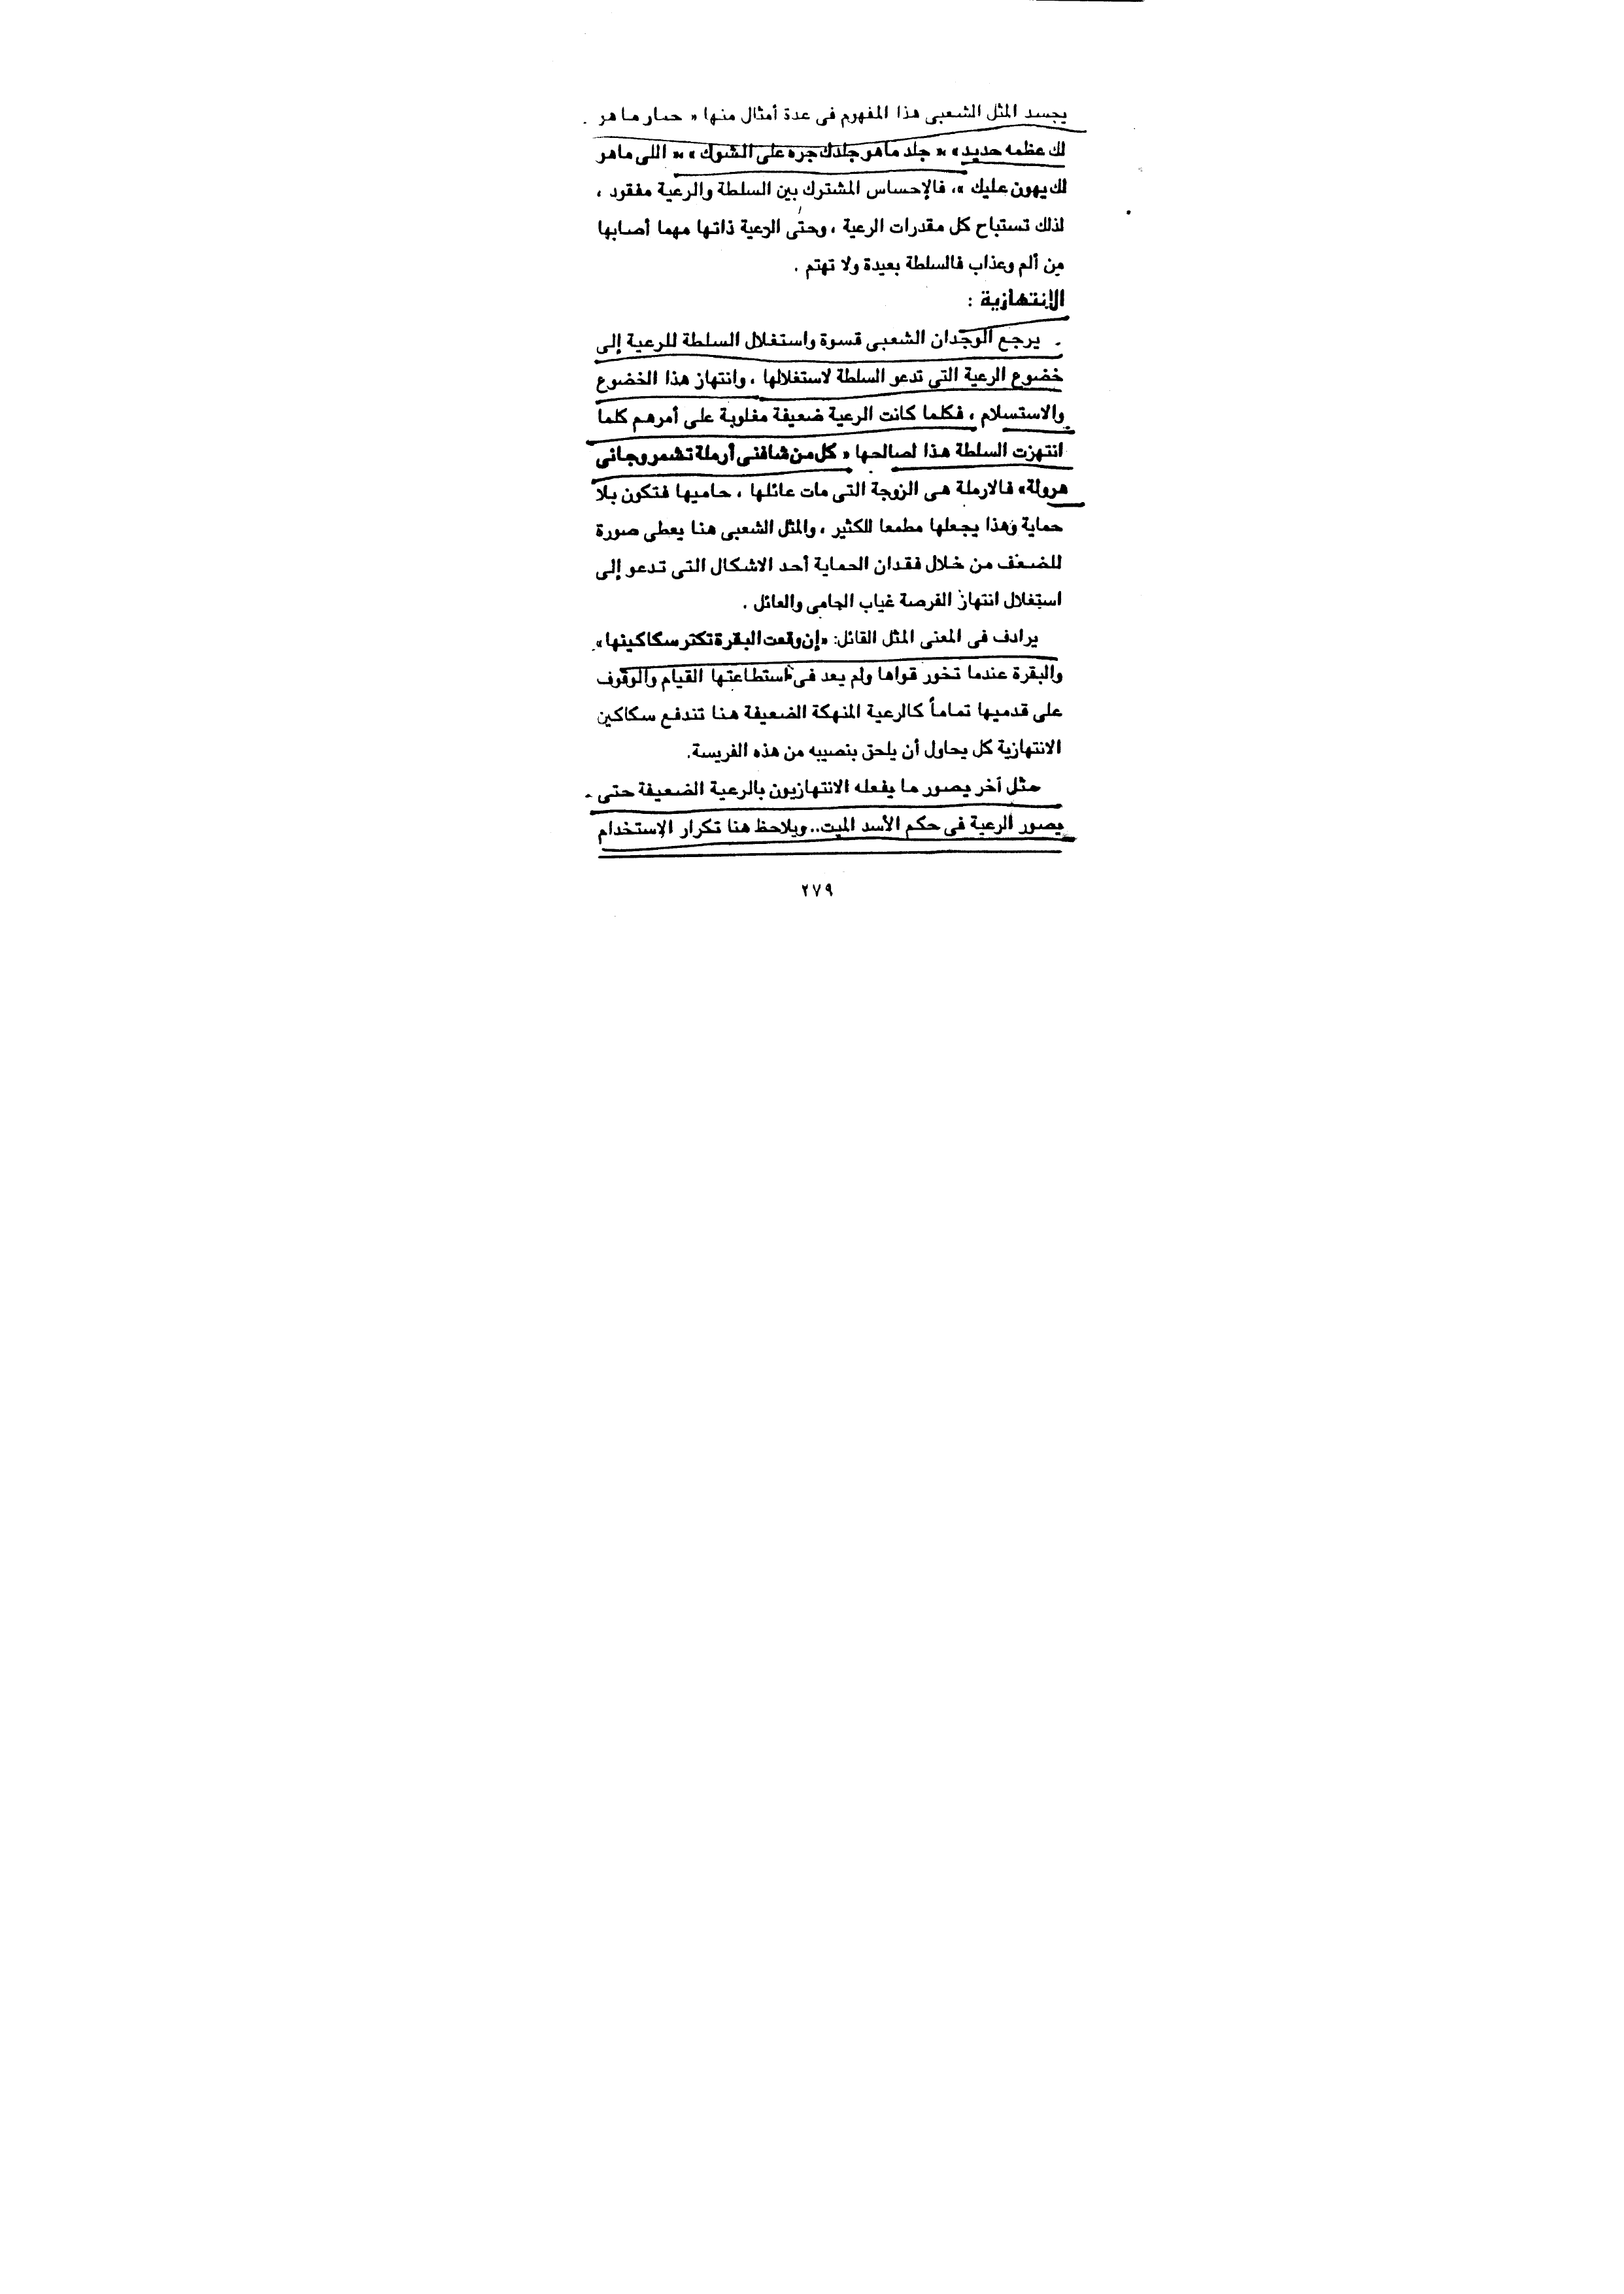 يجسد المثل الشعبى هذا المفهوم فى عدة أمثال منها « حمار ما هو
لك عظمه حديد» «« جلد ماهو جلدك جره على الشوك» «« اللى ماهو
لك يهون عليك »، فالإحساس المشترك بين السلطة والرعية مفقود ،
لذلك تستباح كل مقدرات الرعية ، وحتى الرعية ذاتها مهما أصابها
من ألم وعذاب فالسلطة بعيدة ولا تهتم .
الإنتهازية :
يرجع الوجدان الشعبى قسوة واستغلال السلطة للرعية إلى
خضوع الرعية التى تدعو السلطة لاستغلالها ، وانتهاز هذا الخضوع
والاستسلام ، فكلما كانت الرعية ضعيفة مغلوبة على أمرهم كلما
انتهزت السلطة هذا لصالحها « كل من شافنى أرملة تشمر وجانى
هرولة» فالارملة هى الزوجة التى مات عائلها ، حاميها فتكون بلا
حماية وهذا يجعلها مطمعا للكثير ، والمثل الشعبى هنا يعطى صورة
للضعف من خلال فقدان الحماية أحد الاشكال التى تدعو إلى
استغلال انتهاز الفرصة غياب الحامى والعائل .
يرادف فى المعنى المثل القائل: «إن وقعت البقرة تكتر سكاكينها».
والبقرة عندما تخور قواها ولم يعد فى استطاعتها القيام والوقوف
على قدميها تماماً كالرعية المنهكة الضعيفة هنا تندفع سكاكين
الانتهازية كل يحاول أن يلحق بنصيبه من هذه الفريسة.
مثل آخر يصور ما يفعله الانتهازيون بالرعية الضعيفة حتى
يصور الرعية فى حكم الأسد الميت.. ويلاحظ هنا تكرار الإستخدام
٢٧٩